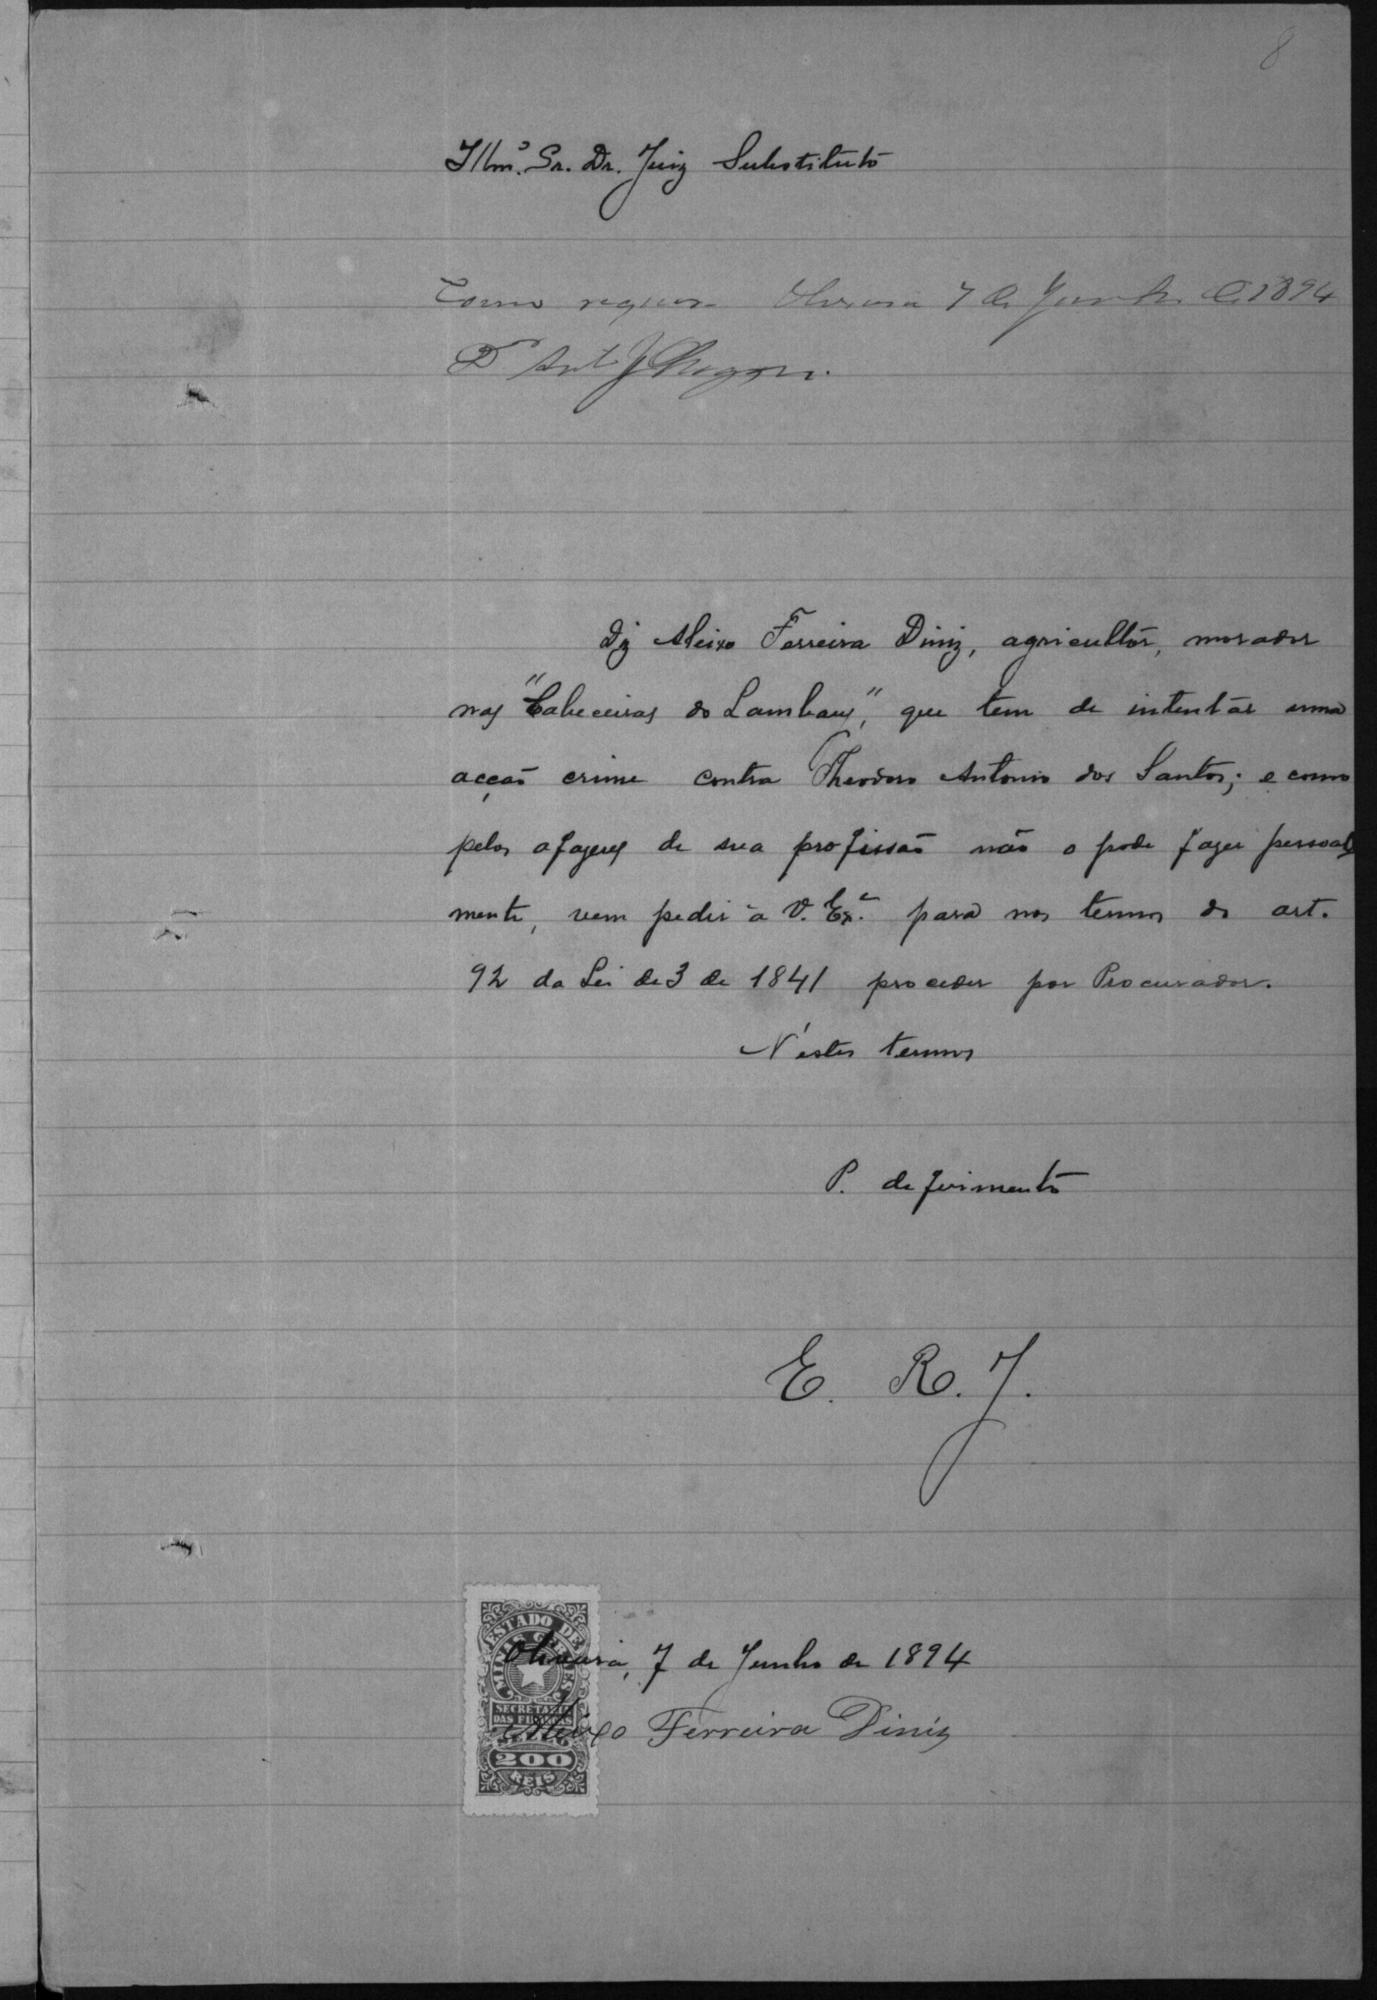 8
Illm.º Sr. Dr. Juiz Substituto
Como requer Oliveira 7 de Junho de 1894
Dr Ant J
Diz Aleixo Ferreira Diniz, agricultor, morador
nas "Cabeceiras do Lambary", que tem de intentar uma
acção crime contra Theodoro Antonio dos Santos; e como
pelos afazeres de sua profissão não o pode fazer pessoal
mente, vem pedir a V. Ex.ª para nos termos do art.
92 da Lei de 3 de 1841 proceder por Procurador.
N'estes termos
P. deferimento
E. R. J.
ESTADO DE
MINAS GERAES
Oliveira, 7 de Junho de 1894
SECRETARIA
DAS FINANÇAS
Aleixo Ferreira Diniz
200
REIS